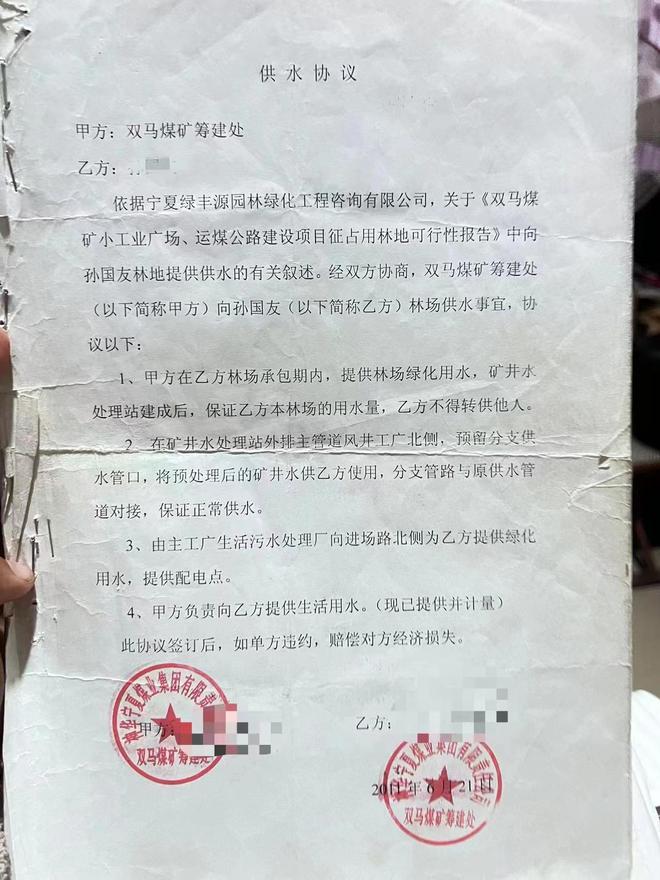 供水协议
甲方：双马煤矿筹建处
乙方：
依据宁夏绿丰源园林绿化工程咨询有限公司，关于《双马煤
矿小工业广场、运煤公路建设项目征占用林地可行性报告》中向
孙国友林地提供供水的有关叙述。经双方协商，双马煤矿筹建处
（以下简称甲方）向孙国友（以下简称乙方）林场供水事宜，协
议以下：
1、甲方在乙方林场承包期内，提供林场绿化用水，矿井水
处理站建成后，保证乙方本林场的用水量，乙方不得转供他人。
2、在矿井水处理站外排主管道风井工广北侧，预留分支供
水管口，将预处理后的矿井水供乙方使用，分支管路与原供水管
道对接，保证正常供水。
3、由主工广生活污水处理厂向进场路北侧为乙方提供绿化
用水，提供配电点。
4、甲方负责向乙方提供生活用水。（现已提供并计量）
此协议签订后，如单方违约，赔偿对方经济损失。
甲方：
乙方：
2011年6月21日
神华宁夏煤业集团有限责
双马煤矿筹建处
神华宁夏煤业集团有限责任公司
双马煤矿筹建处